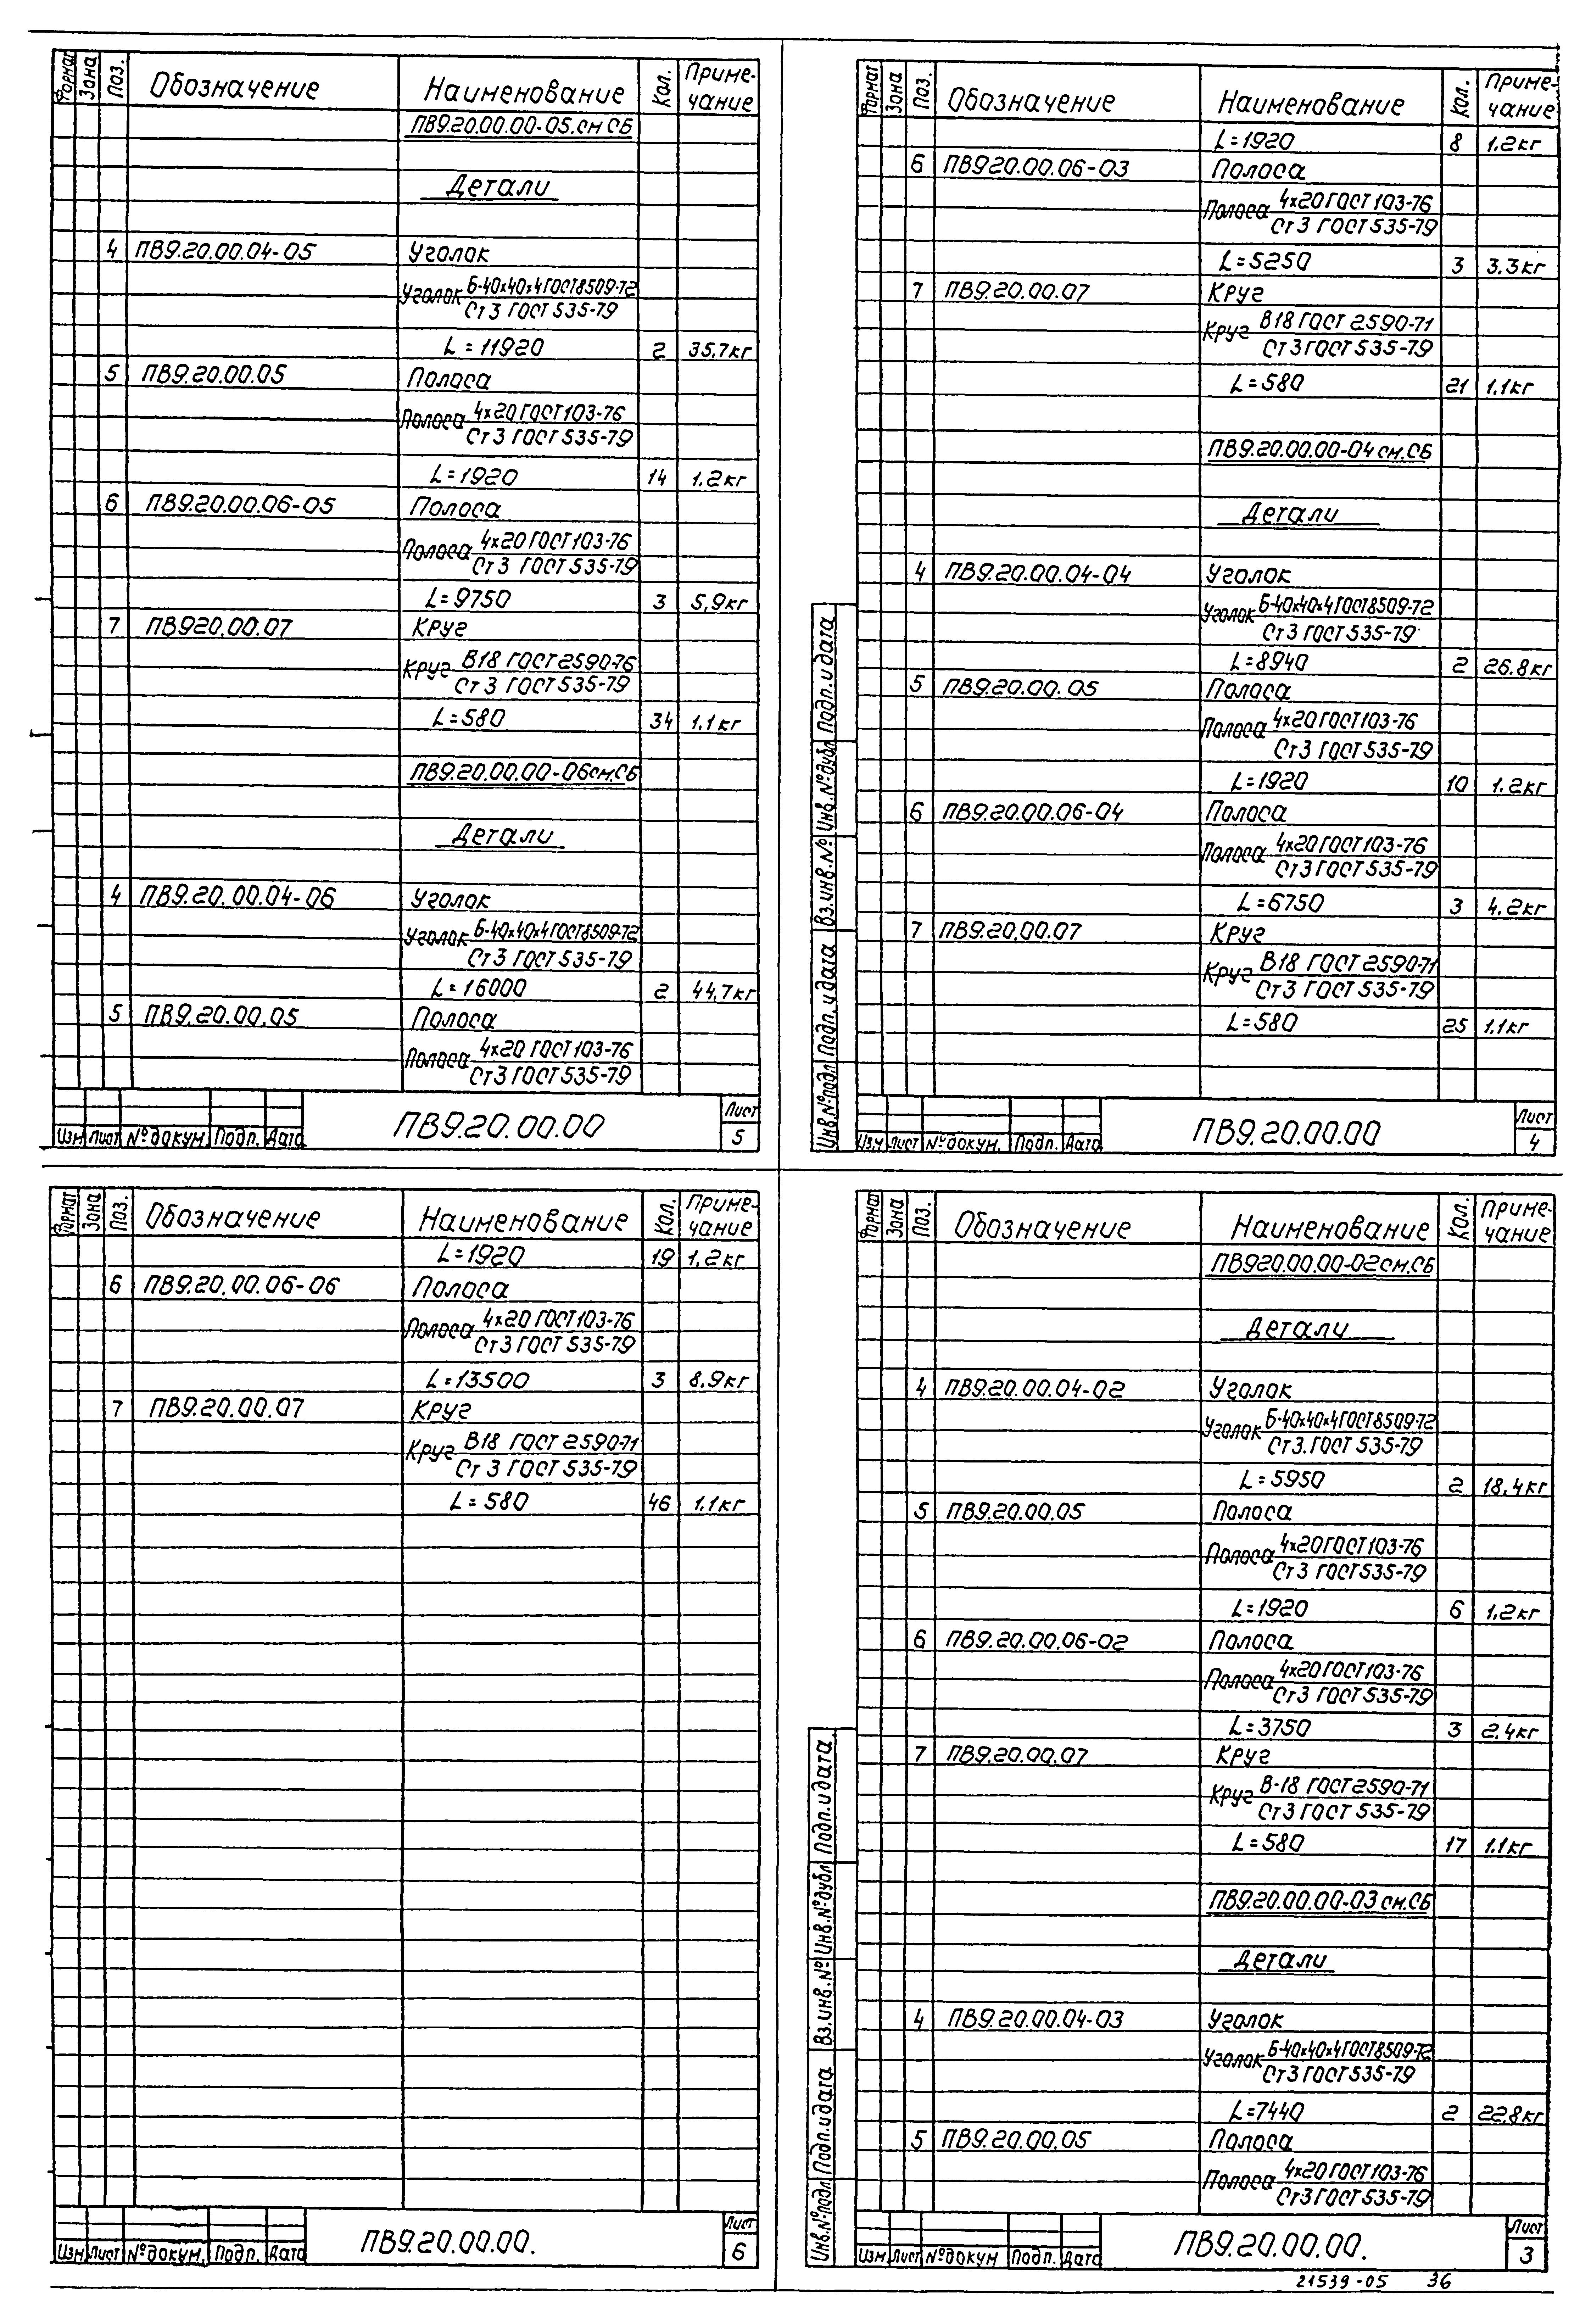 Формат Зона Поз. Обозначение Наименование Кол. Приме-
чание
ПВ9.20.00.00-05.см СБ
Детали
4 ПВ9.20.00.04-05 Уголок
Уголок Б-40х40х4 ГОСТ8509-72
Ст3 ГОСТ 535-79
L=11920 2 35,7кг
5 ПВ9.20.00.05 Полоса
Полоса 4х20 ГОСТ103-76
Ст3 ГОСТ 535-79
L=1920 14 1,2кг
6 ПВ9.20.00.06-05 Полоса
Полоса 4х20 ГОСТ103-76
Ст3 ГОСТ 535-79
L=9750 3 5,9кг
7 ПВ920.00.07 Круг
Круг В18 ГОСТ 2590-76
Ст3 ГОСТ 535-79
L=580 34 1.1кг
ПВ9.20.00.00-06см.СБ
Детали
4 ПВ9.20.00.04-06 Уголок
Уголок Б-40х40х4 ГОСТ8509-72
Ст3 ГОСТ 535-79
L=16000 2 44,7кг
5 ПВ9.20.00.05 Полоса
Полоса 4х20 ГОСТ103-76
Ст3 ГОСТ 535-79
Изм Лист №докум. Подп. Дата ПВ9.20.00.00 Лист
5
Формат Зона Поз. Обозначение Наименование Кол. Приме-
чание
L=1920 8 1.2кг
6 ПВ9.20.00.06-03 Полоса
Полоса 4х20 ГОСТ 103-76
Ст3 ГОСТ 535-79
L=5250 3 3.3кг
7 ПВ9.20.00.07 Круг
Круг В18 ГОСТ 2590-71
Ст3 ГОСТ 535-79
L=580 21 1,1кг
ПВ9.20.00.00-04см.СБ
Детали
4 ПВ9.20.00.04-04 Уголок
Уголок Б-40х40х4 ГОСТ8509-72
Ст3 ГОСТ 535-79
L=8940 2 26.8кг
5 ПВ9.20.00.05 Полоса
Полоса 4х20 ГОСТ103-76
Ст3 ГОСТ 535-79
L=1920 10 1.2кг
6 ПВ9.20.00.06-04 Полоса
Полоса 4х20 ГОСТ103-76
Ст3 ГОСТ 535-79
L=6750 3 4.2кг
7 ПВ9.20.00.07 Круг
Круг В18 ГОСТ 2590-71
Ст3 ГОСТ 535-79
L=580 25 1.1кг
Инв.№подл Подп. и дата Вз.инв.№ Инв.№дубл Подп. и дата
Изм Лист №докум. Подп. Дата ПВ9.20.00.00 Лист
4
Формат Зона Поз. Обозначение Наименование Кол. Приме-
чание
L=1920 19 1,2кг
6 ПВ9.20.00.06-06 Полоса
Полоса 4х20 ГОСТ103-76
Ст3 ГОСТ 535-79
L=13500 3 8.9кг
7 ПВ9.20.00.07 Круг
Круг В18 ГОСТ 2590-71
Ст 3 ГОСТ 535-79
L=580 46 1.1кг
Изм Лист №докум. Подп. Дата ПВ9.20.00.00. Лист
6
Формат Зона Поз. Обозначение Наименование Кол. Приме-
чание
ПВ920.00.00-02см.СБ
Детали
4 ПВ9.20.00.04-02 Уголок
Уголок Б-40х40х4 ГОСТ8509-72
Ст3. ГОСТ 535-79
L=5950 2 18,4кг
5 ПВ9.20.00.05 Полоса
Полоса 4х20 ГОСТ103-76
Ст3 ГОСТ 535-79
L=1920 6 1,2кг
6 ПВ9.20.00.06-02 Полоса
Полоса 4х20 ГОСТ103-76
Ст3 ГОСТ 535-79
L=3750 3 2.4кг
7 ПВ9.20.00.07 Круг
Круг В-18 ГОСТ 2590-71
Ст3 ГОСТ 535-79
L=580 17 1.1кг
ПВ9.20.00.00-03см.СБ
Детали
4 ПВ9.20.00.04-03 Уголок
Уголок Б-40х40х4 ГОСТ8509-72
Ст3 ГОСТ 535-79
L=7440 2 22,8кг
5 ПВ9.20.00.05 Полоса
Полоса 4х20 ГОСТ103-76
Ст3 ГОСТ 535-79
Инв.№подл Подп. и дата Вз.инв.№ Инв.№дубл Подп. и дата
Изм Лист №докум Подп. Дата ПВ9.20.00.00. Лист
3
21539-05 36